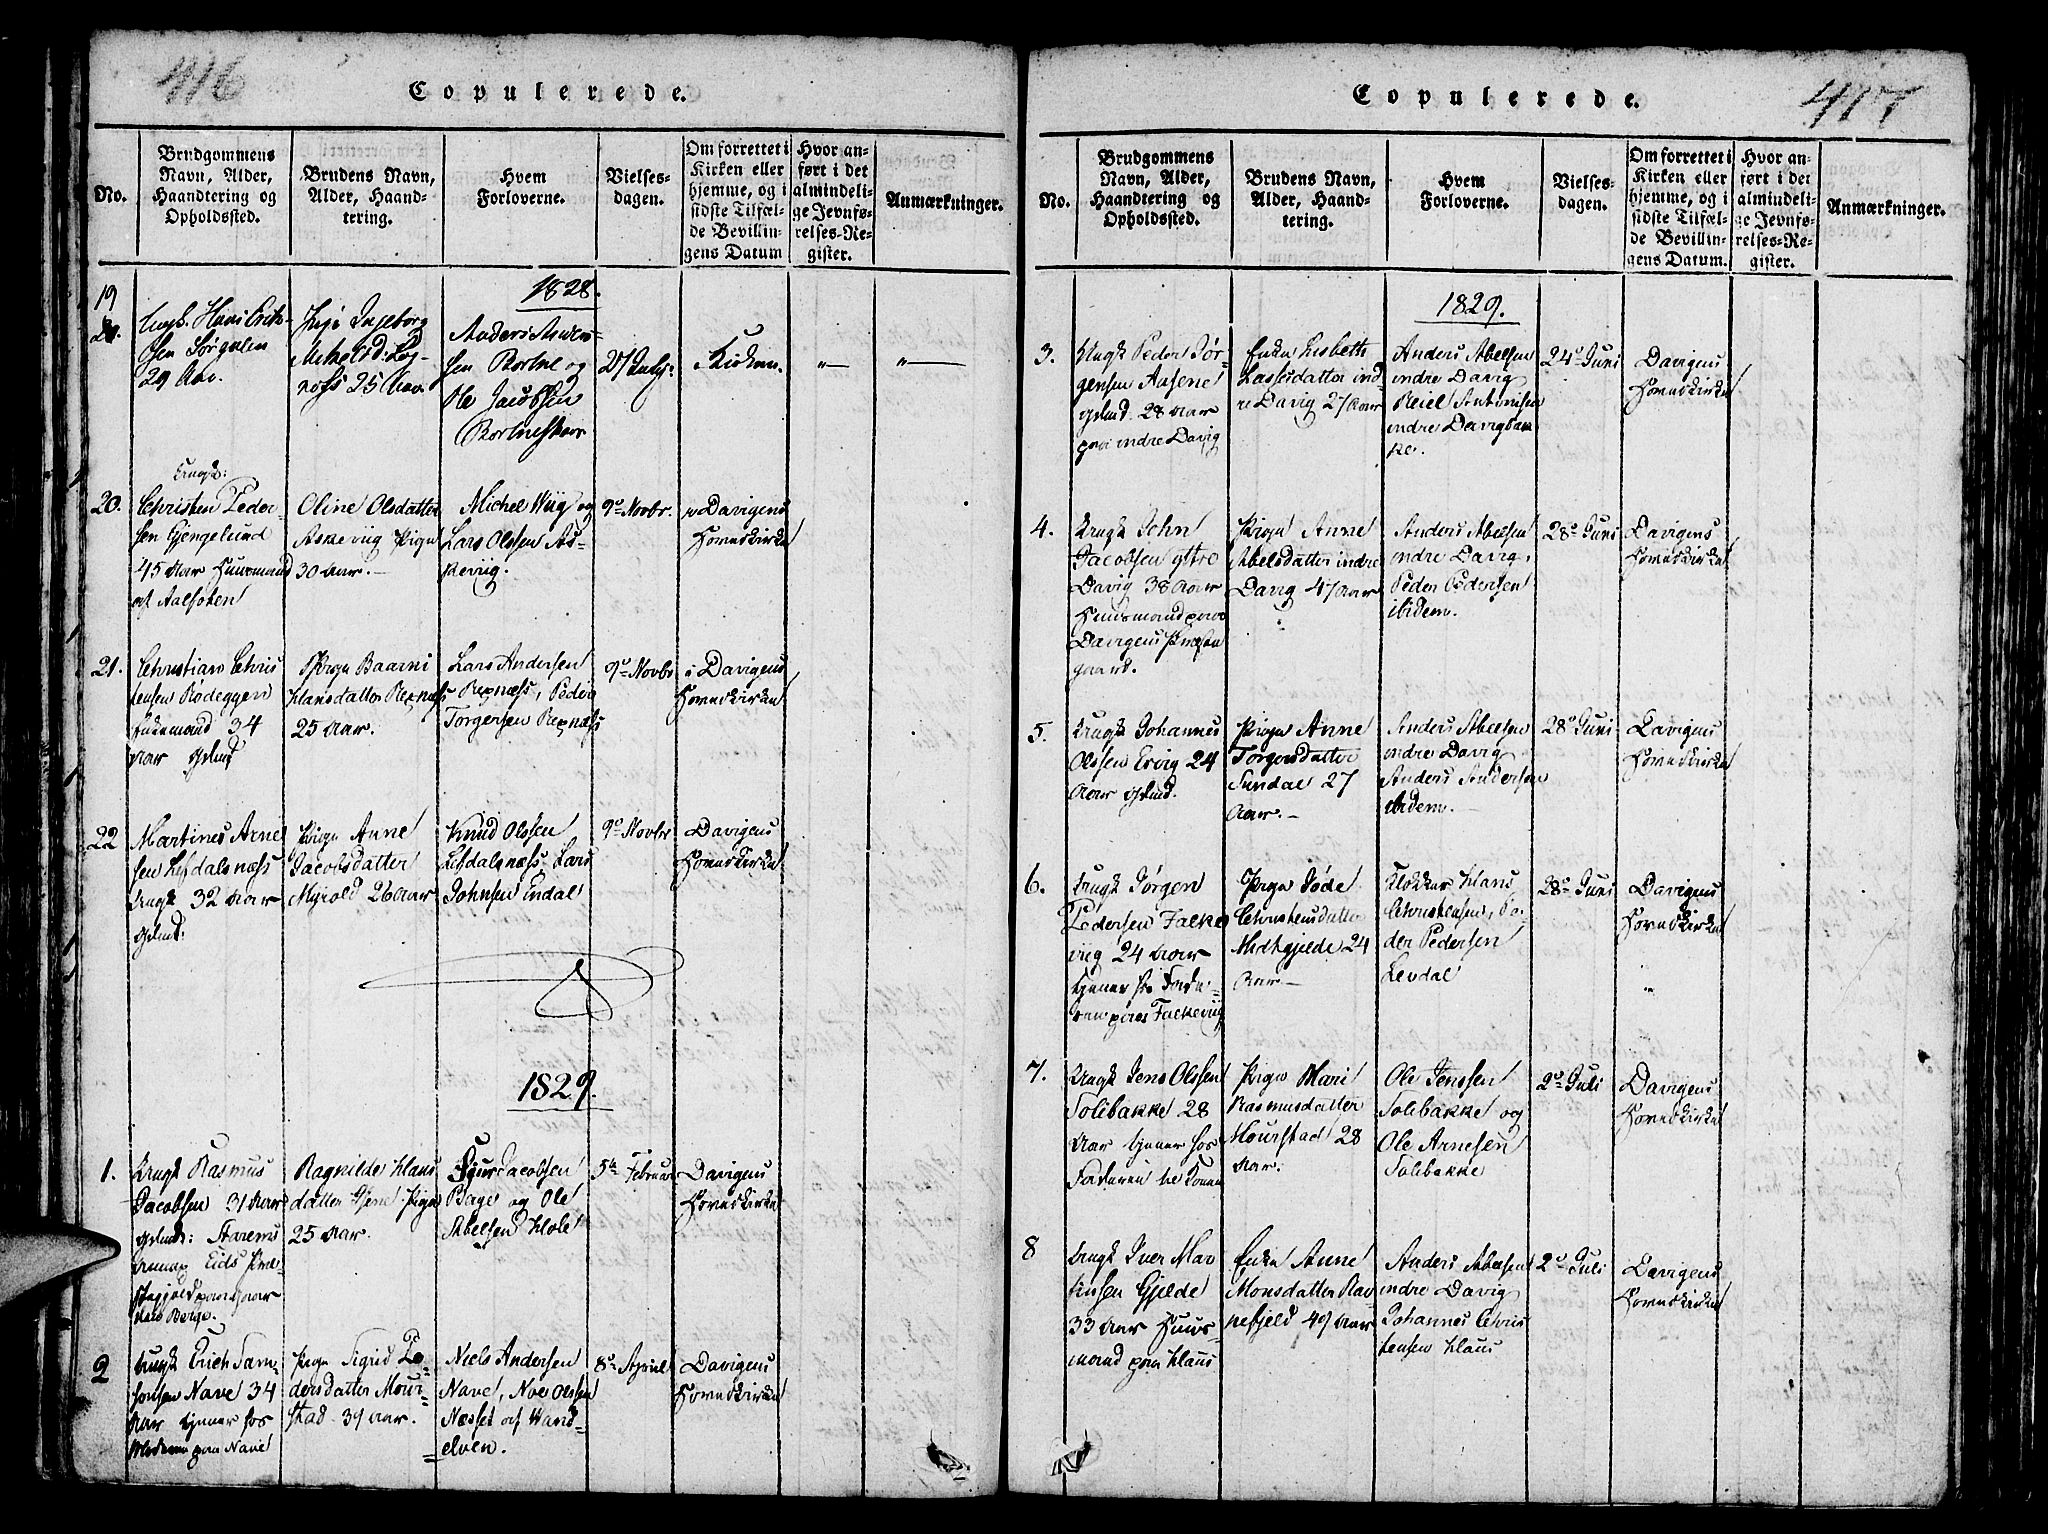 416
Copulerede.
No.
Brudgommens
Navn, Alder,
Haandtering og
Opholdssted.
Brudens Navn,
Alder, Haand-
tering.
Hvem
Forloverne.
Vielses-
dagen.
Om forrettet i
Kirken eller
hjemme, og i
sidste Tilfæl-
de Bevillin-
gens Datum
Hvor an-
ført i det
almindeli-
ge Jevnfø-
relses-Re-
gister.
Anmærkninger.
1828.
19
Ungk. Hans Erik-
sen Sørgulen
29 Aar.
Pige Ingeborg
25 Aar.
Anders
sen Bortne og
Ole Jacobsen
Bortneskaar
27 July
Kirken.
20.
Ungk:
Christen Peder-
sen Gjengelund
45 Aar Huusmand
af Aalfoten
Oline Olsdatter
Askeviig Pige
30 Aar.
Michel Wiig og
Lars Olssen As-
keviig.
9de Novbr.
Davigens
Hovedkirke
21.
Christian Chris
tensen Rødeggen
Enkemand 34
Aar
Pige Baarni
Hansdatter Rexnæss
25 Aar.
Lars Andersen
Rexnæss, Peder
Torgersen Rexnæss
9de Novbr
i Davigens
Hovedkirke
22
Martines Arne
sen Lefdalsnæss
Ungk 32 Aar
Pige Anne
Jacobsdatter
Myrold 26 Aar
Knud Olssen
Lefdalsnæss, Lars
Johnsen Endal
9de Novbr
Davigens
Hovedkirke
1829.
1.
Ungk Rasmus
Jacobsen 31 Aar
Eids
Berge.
Ragnilde Hans
datter Hjene Pige
25 Aar.
Jacobsen
Bage og Ole
Abelsen Hole
5te Februar
Davigens
Hovedkirke
2
Ungk Erich Sam-
sonsen Nave 34
Aar tjener hos
Moderen paa Nave
Pige Sigrid Pe-
dersdatter Mour-
stad 39 Aar.
Niels Andersen
Nave, Noe Olssen
Næsset af Wand-
elven.
8de April
Davigens
Hovedkirke
417
Copulerede.
No.
Brudgommens
Navn, Alder,
Haandtering og
Opholdssted.
Brudens Navn,
Alder, Haand-
tering.
Hvem
Forloverne.
Vielses-
dagen.
Om forrettet i
Kirken eller
hjemme, og i
sidste Tilfæl-
de Bevillin-
gens Datum.
Hvor an-
ført i det
almindeli-
ge Jevnfø-
relses-Re-
gister.
Anmærkninger.
1829.
3.
Ungk Peder Jør-
gensen Aasene
28 Aar
paa indre Davig
Enke Lisbeth
Lassesdatter ind-
re Davig 27 Aar
Anders Abelsen
indre Davig
Reiel Antonisen
indre Davigbak
ke.
24de Juni
Davigens
Hovedkirke
4.
Ungk John
Jacobsen ytre
Davig 38 Aar
Huusmand paa
Davigens Præste
gaard.
Pige Anne
Abelsdatter indre
Davig 47 Aar
Anders Abelsen
indre Davig,
Peder Pedersen
ibidem.
28de Juni
Davigens
Hovedkirke
5.
Ungk Johannes
Olssen Ervig 24
Aar
Pige Anne
Torgersdatter
Sundal 27
Aar.
Anders Abelsen
indre Davig
Anders Andersen
ibidem.
28de Juni
Davigens
Hovedkirke
6.
Ungk Jørgen
Pedersen Falke
viig 24 Aar
tjener hos Fade-
ren paa Falkeviig
Pige Jøde
Christensdatter
Midthjelde 24
Aar
Klokker Hans
Christensen, Pe
der Pedersen
Levdal
28de Juni
Davigens
Hovedkirke
7.
Ungk Jens Olssen
Solibakke 28
Aar tjener hos
Faderen
Pige Mari
Rasmusdatter
Mourstad 28
Aar.
Ole Jenssen
Solibakke og
Ole Arnesen
Solibakke
2de Juli
Davigens
Hovedkirke
8
Ungk Iver Mar
kusen Gjelde
33 Aar Huus-
mand paa Hauss
Enke Anne
Monsdatter Rav
nefjeld 49 Aar
Anders Abelsen
indre Davig
Johannes Chris
tensen Hauss
2de Juli
Davigens
Hovedkirke